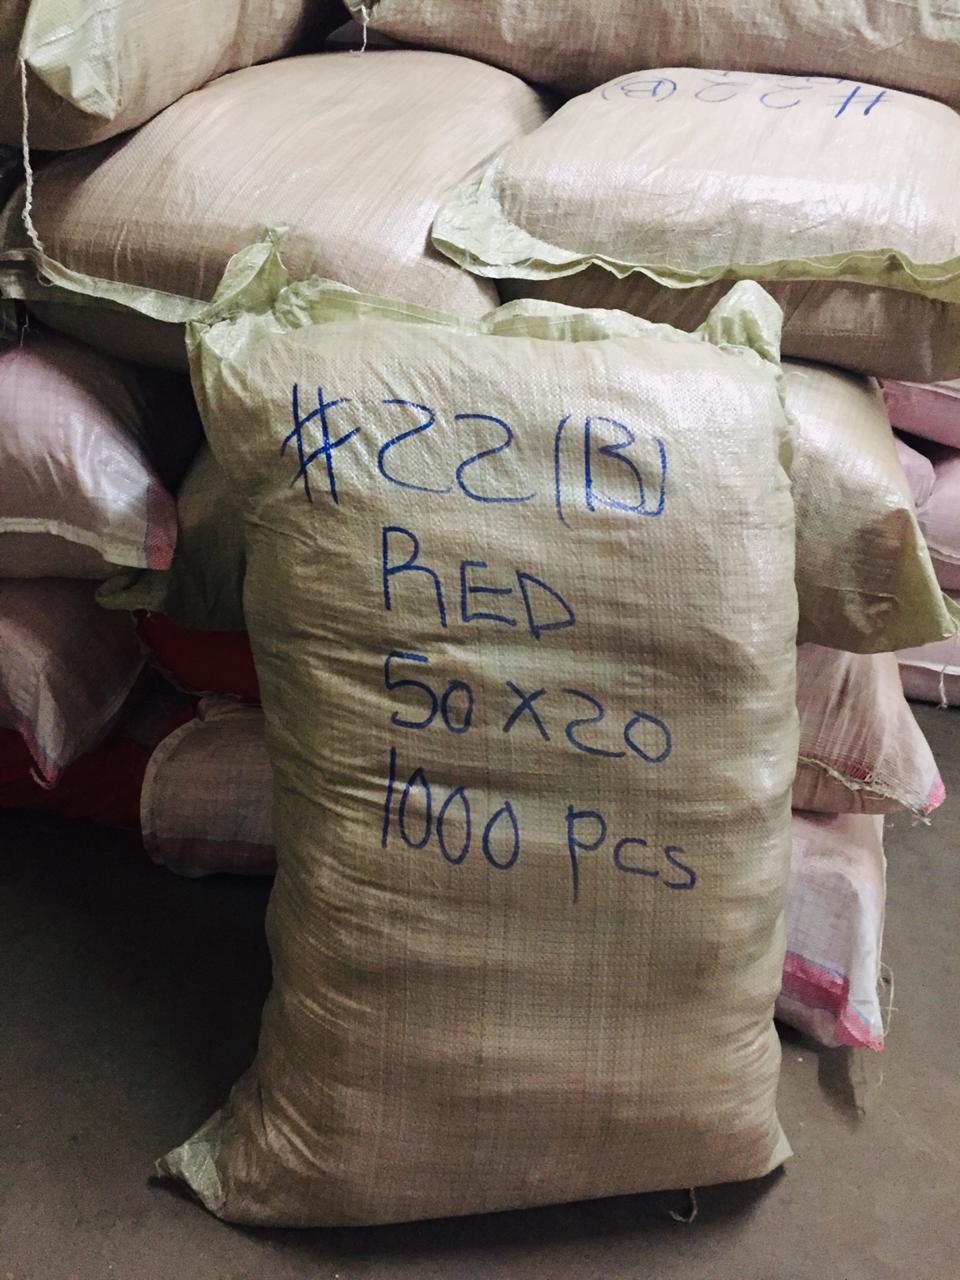 #22(B)
#22(B)
RED
50x20
1000 pcs